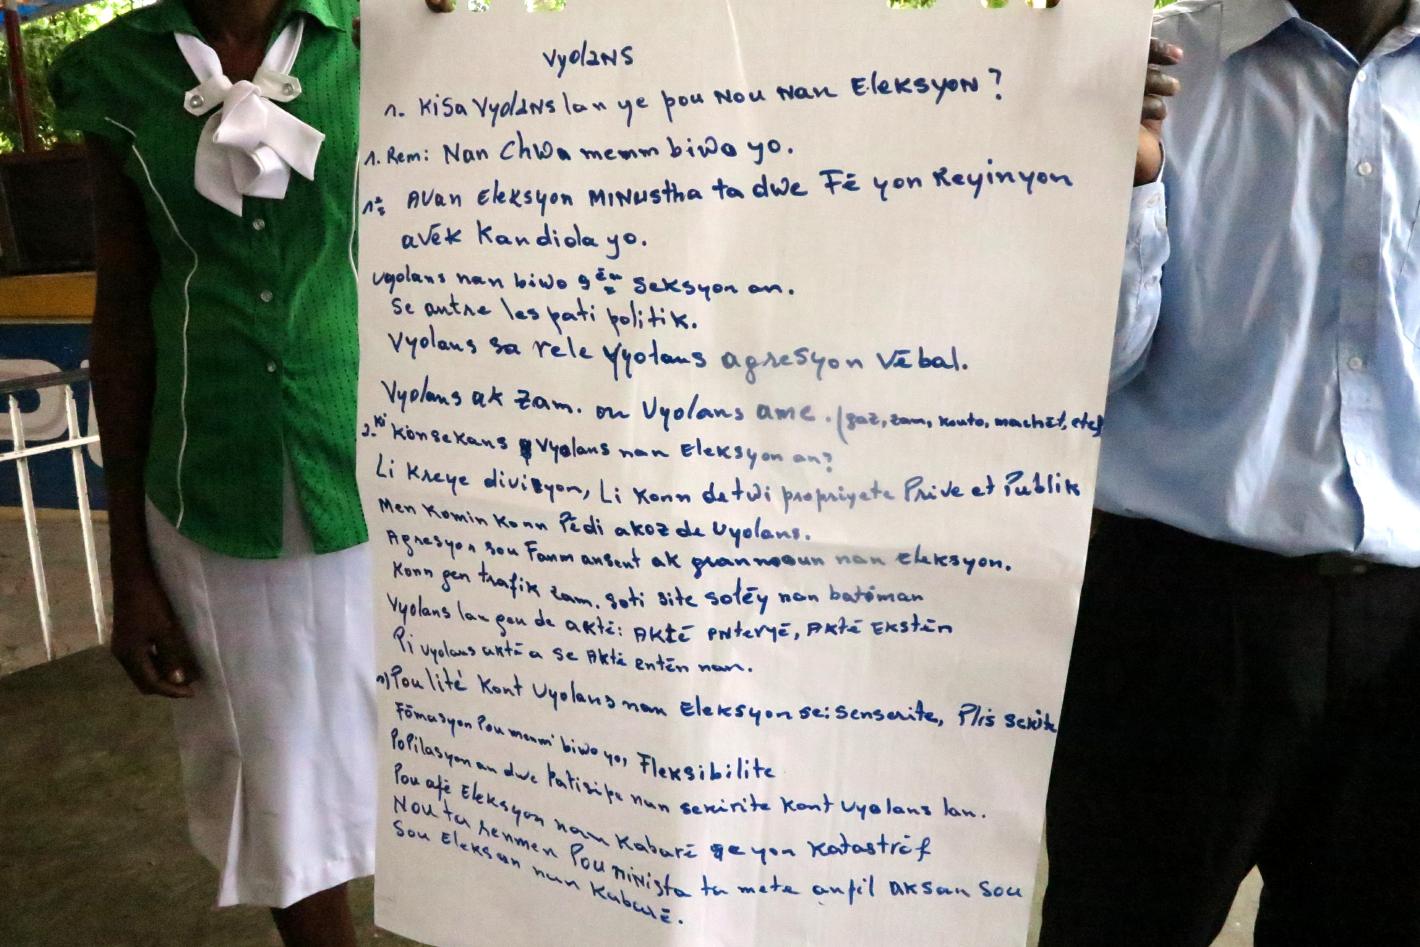 VyolaNS
1. Kisa VyolaNS lan ye pou Nou Nan Eleksyon ?
1. Rem: Nan Chwa memm biwo yo.
Avan Eleksyon MINUstha ta dwe Fē yon Reyinyon
avēk Kandida yo.
Vyolans nan biwo 9èm Seksyon an.
Se antre les pati politik.
Vyolans sa rele Vyolans agresyon Vēbal.
Vyolans ak Zam. ou Vyolans ame. (gaz, zam, kouto, machēt, etc)
2. Ki Konsekans Vyolans nan Eleksyon an?
Li Kreye divizyon, Li Konn detwi propriyete Prive et Publik
Men Komin Konn Pēdi akoz de Vyolans.
Agresyon sou Fanm ansent ak granmoun nan eleksyon.
Konn gen trafik zam. soti site solēy nan batiman
Vyolans lan gen de aktē: AKtē ENtēryē, AKtē EKstēn
Pi vyolans aktē a se AKtē entēn nan.
Pou lité Kont Vyolans nan Eleksyon se: Senserite, Plis sekirite
Fōmasyon Pou memm biwo yo, Fleksibilite
Popilasyon an dwe Patisipe nan sekirite kont vyolans lan.
Pou afē Eleksyon nan Kabarē se yon Katastrēf
Nou ta renmen Pou Minista ta mete anpil aksan sou
Sou Eleksyon nan Kabarē.